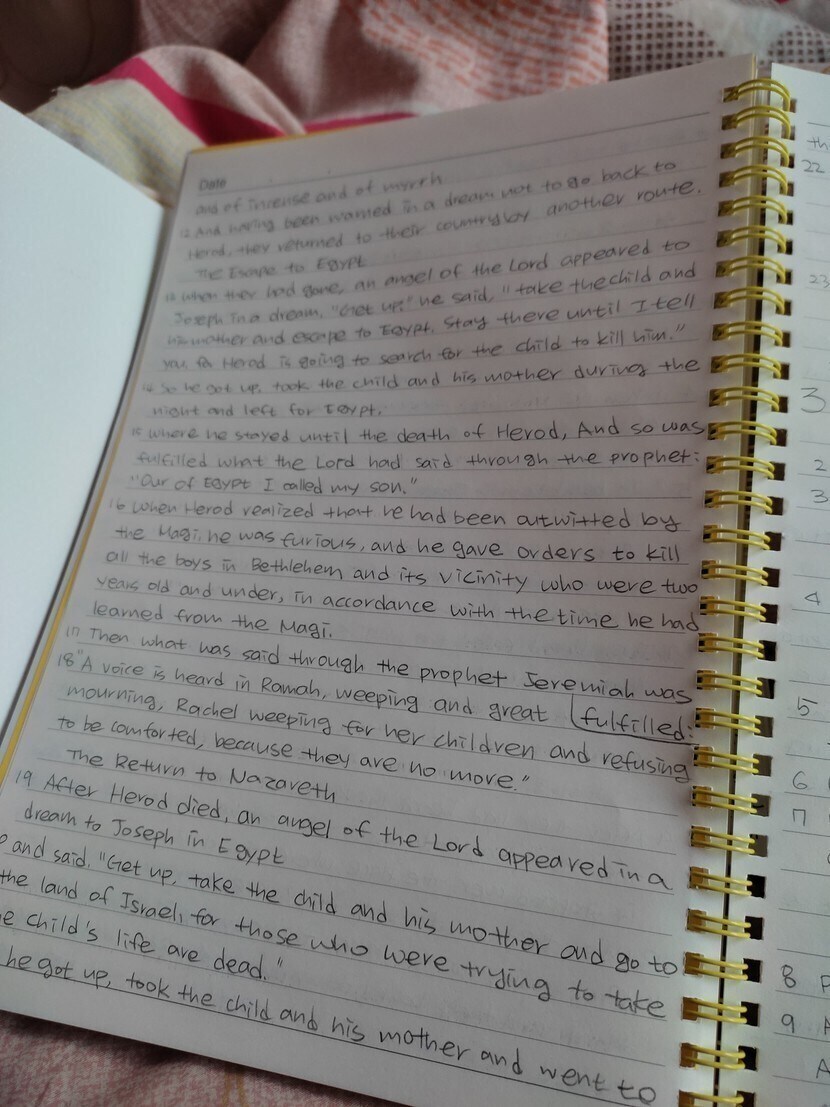 Date
and of incense and of myrrh
12 And having been wanted in a dream not to go back to
Herod, they returned to their country by another route.
The Escape to Egypt
13 when they had gone, an angel of the Lord appeared to
Joseph in a dream. "Get up," he said, "take the child and
his mother and escape to Egypt. Stay there until I tell
you, for Herod is going to search for the child to kill him."
14 so he got up, took the child and his mother during the
night and left for Egypt,
15 where he stayed until the death of Herod, And so was
fulfilled what the Lord had said through the prophet:
"Our of Egypt I called my son."
16 When Herod realized that he had been outwitted by
the Magi, he was furious, and he gave orders to kill
all the boys in Bethlehem and its vicinity who were two
years old and under, in accordance with the time he had
learned from the Magi.
17 Then what was said through the prophet Jeremiah was
fulfilled:
18 "A voice is heard in Ramah, weeping and great
mourning, Rachel weeping for her children and refusing
to be comforted, because they are no more."
The Return to Nazareth
19 After Herod died, an angel of the Lord appeared in a
dream to Joseph in Egypt
and said. "Get up, take the child and his mother and go to
the land of Israel, for those who were trying to take
child's life are dead."
he got up, took the child and his mother and went to
22
23
3
2
3
4
5
6
7
8
9